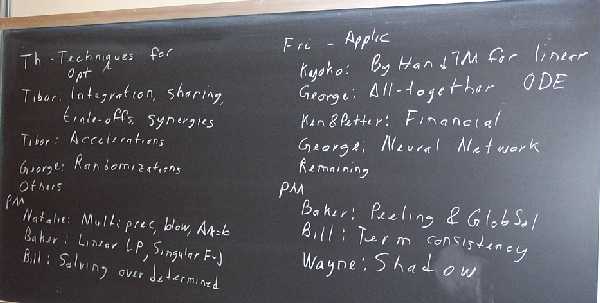 Th - Techniques for
Opt ^
Tibor: Integration, Sharing,
trade-offs, synergies
Tibor: Accelerations
George: Randomizations
Others
PM
Natalie: Multiprec, blow,
Baker: Linear (P, Singular
Bill: Solving over determined
Fri - Applic
Kyoko: By Hand TM for linear
ODE
George: All-together
Ken & Petter: Financial
George, Neural Network
Remaining
PM
Baker: Peeling & GlobSol
Bill: Term consistency
Wayne: Shadow